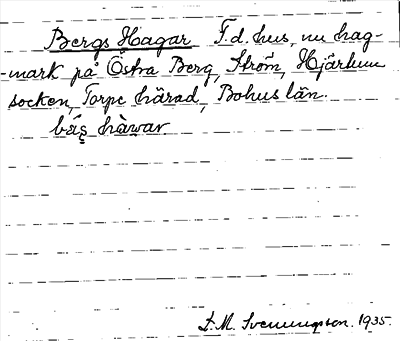 Bergs Hagar F.d. hus, nu hag-
mark på Östra Berg, Ström, Hjärtum
socken, Torpe härad, Bohus län.
bás̨ hàwar
S. M. Svenungsson. 1935.